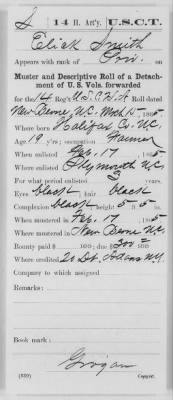 S 14 H. Art'y. U.S.C.T.
Elick Smith
Appears with rank of Priv. on
Muster and Descriptive Roll of a Detach-
ment of U. S. Vols. forwarded
for the 14 Reg't U.S.C.H.A. Roll dated
New Berne N.C. Mch 15, 1865.
Where born Halifax Co. N.C.
Age 19 y'rs; occupation Farmer
When enlisted Feb. 17, 1865
Where enlisted Plymouth N.C.
For what period enlisted 3 years.
Eyes black; hair black
Complexion black; height 5 ft. 5 in.
When mustered in Feb. 17, 1865
Where mustered in New Berne N.C.
Bounty paid $ 100; due $ 300 100
Where credited 20 Dt. Adams N.Y.
Company to which assigned
Remarks:
Book mark:
Grogan
(339) Copyist.